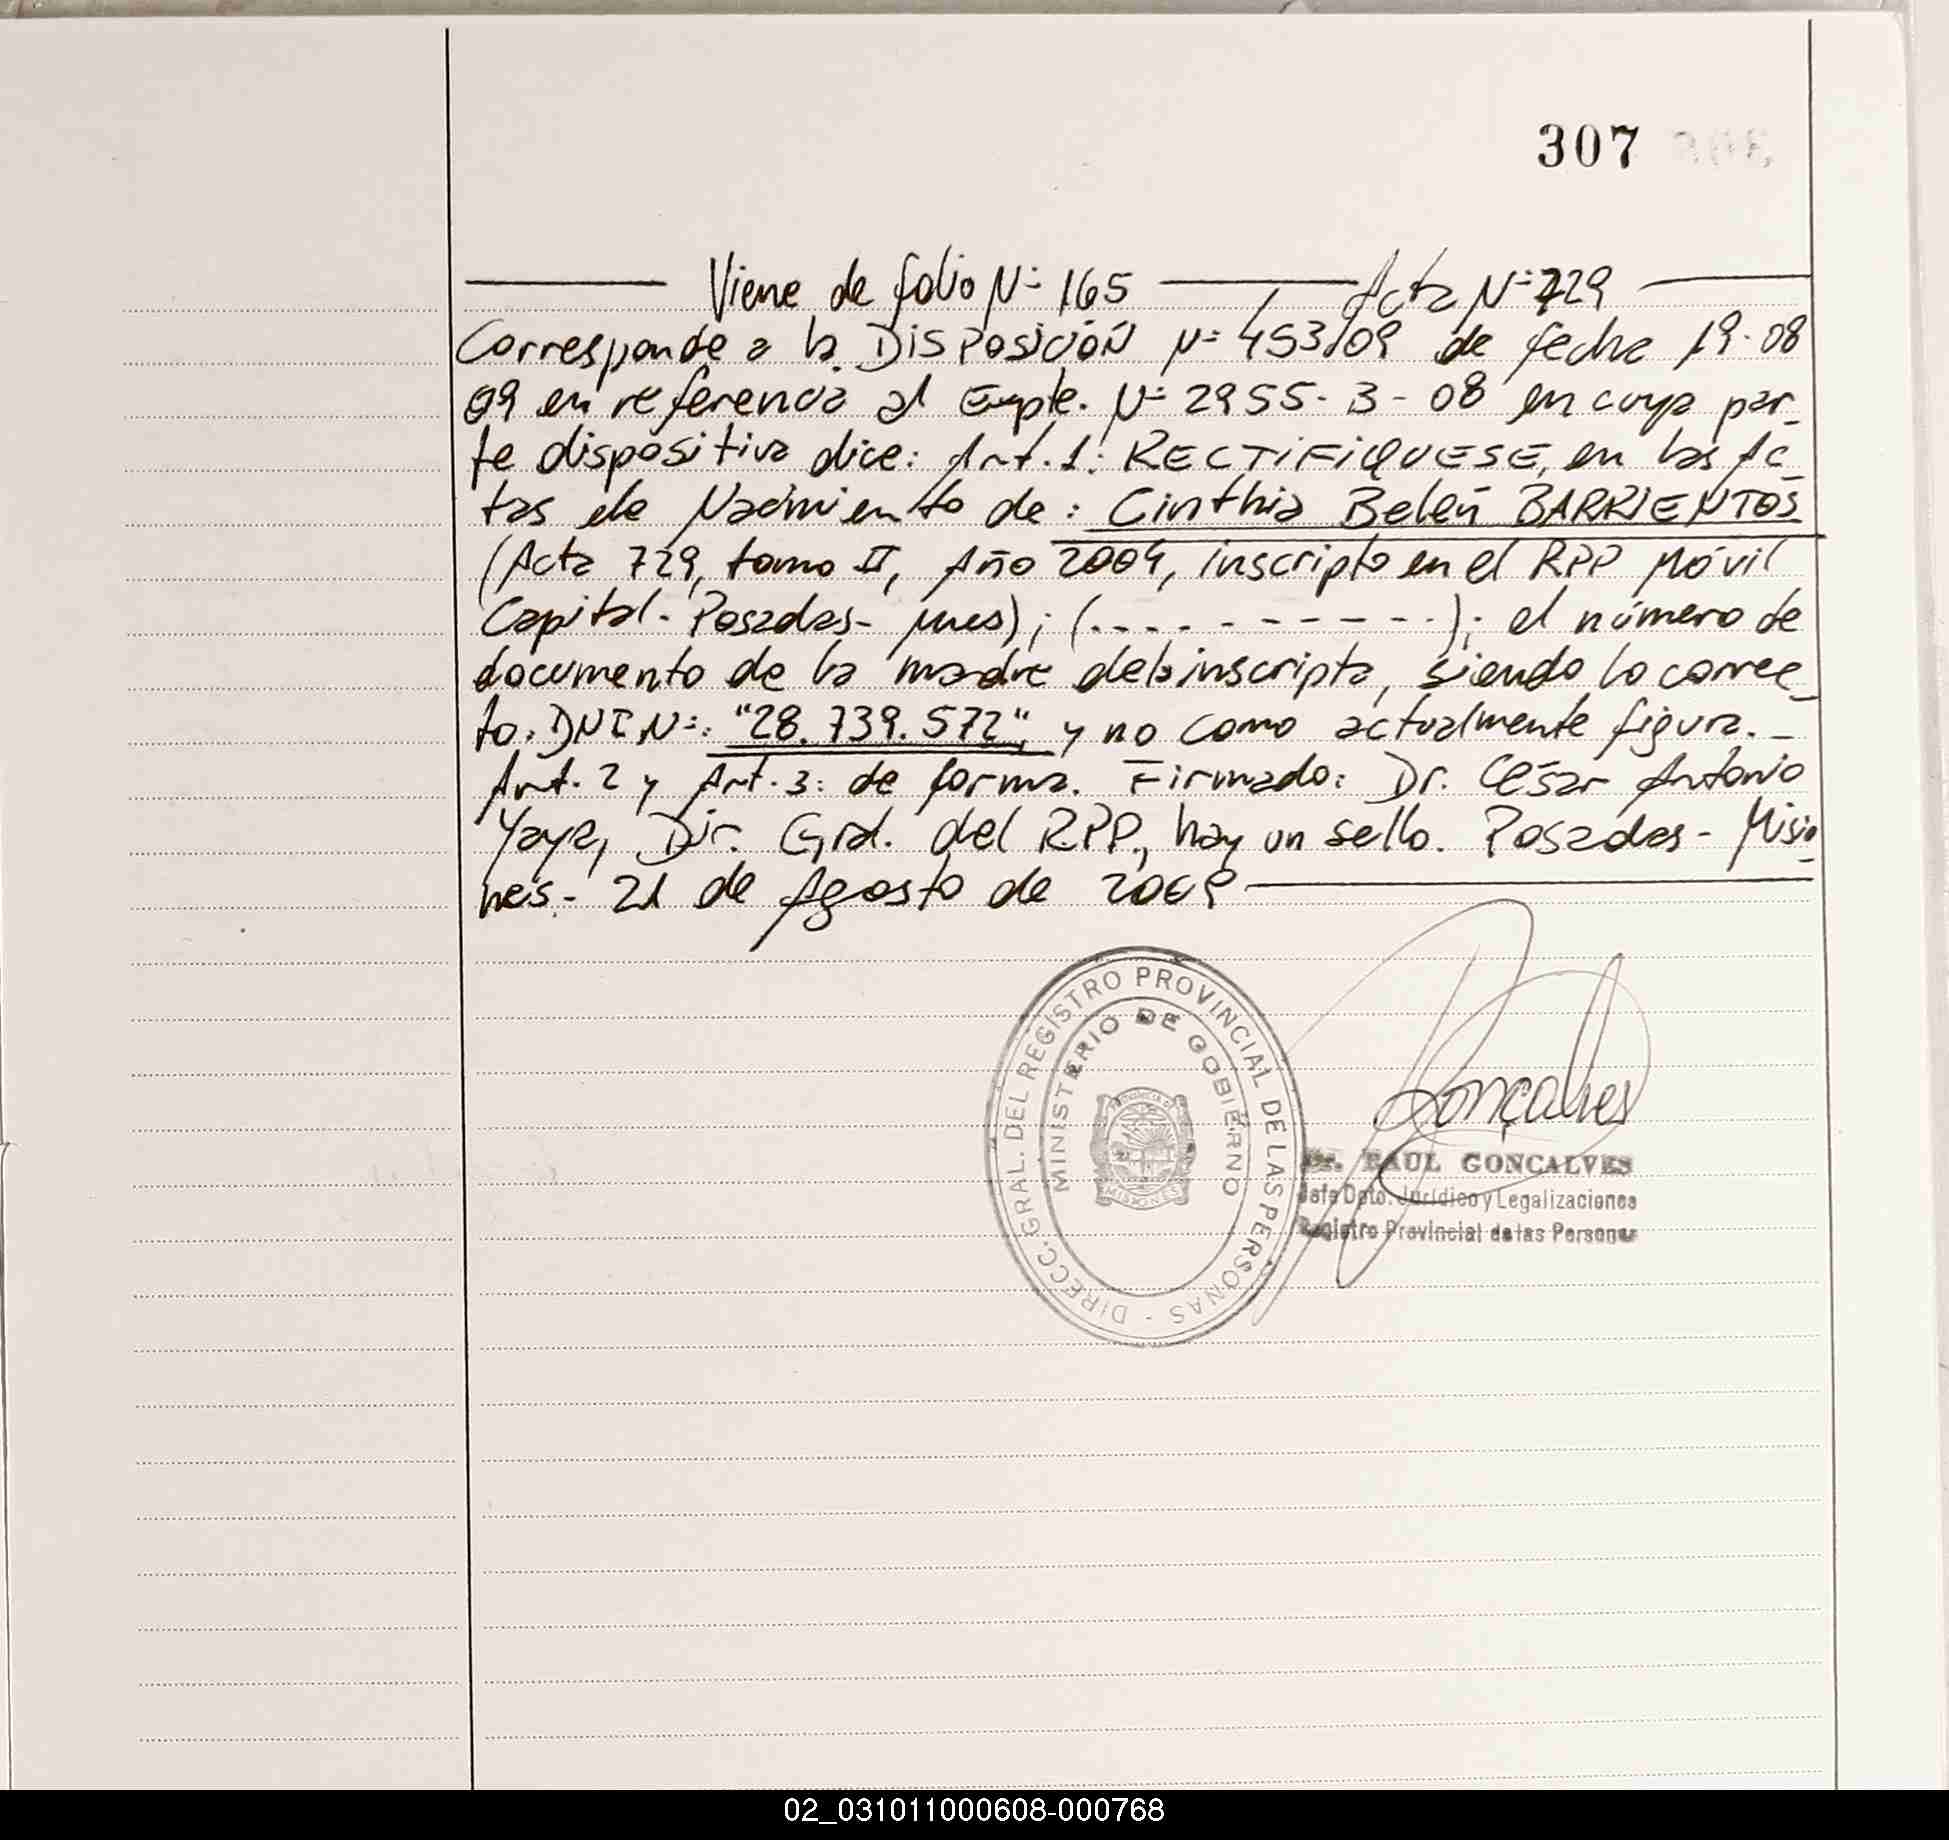 307
Viene de folio Nº 165 Acta Nº 729
Corresponde a la Disposición Nº 453/09 de fecha 19-08
09 en referencia al Expte. Nº 2955-3-08 en cuya par-
te dispositiva dice: Art. 1: RECTIFIQUESE, en las Ac-
tas de Nacimiento de: Cinthia Belén BARRIENTOS
(Acta 729, tomo II, Año 2004, inscripto en el RPP Móvil
Capital- Posadas- Mnes); (- - - - - - - - - -); el número de
documento de la madre de la inscripta, siendo lo correc-
to: DNI Nº: "28.739.572", y no como actualmente figura.-
Art. 2 y Art. 3: de forma. Firmado: Dr. César Antonio
Yaya, Dir. Gral. del RPP., hay un sello. Posadas- Misio-
nes- 21 de Agosto de 2009
DIRECC. GRAL. DEL REGISTRO PROVINCIAL DE LAS PERSONAS -
MINISTERIO DE GOBIERNO
PROVINCIA DE
MISIONES
Gonçalves
Dr. RAUL GONCALVES
Jefe Dpto. Jurídico y Legalizaciones
Registro Provincial de las Personas
02_031011000608-000768